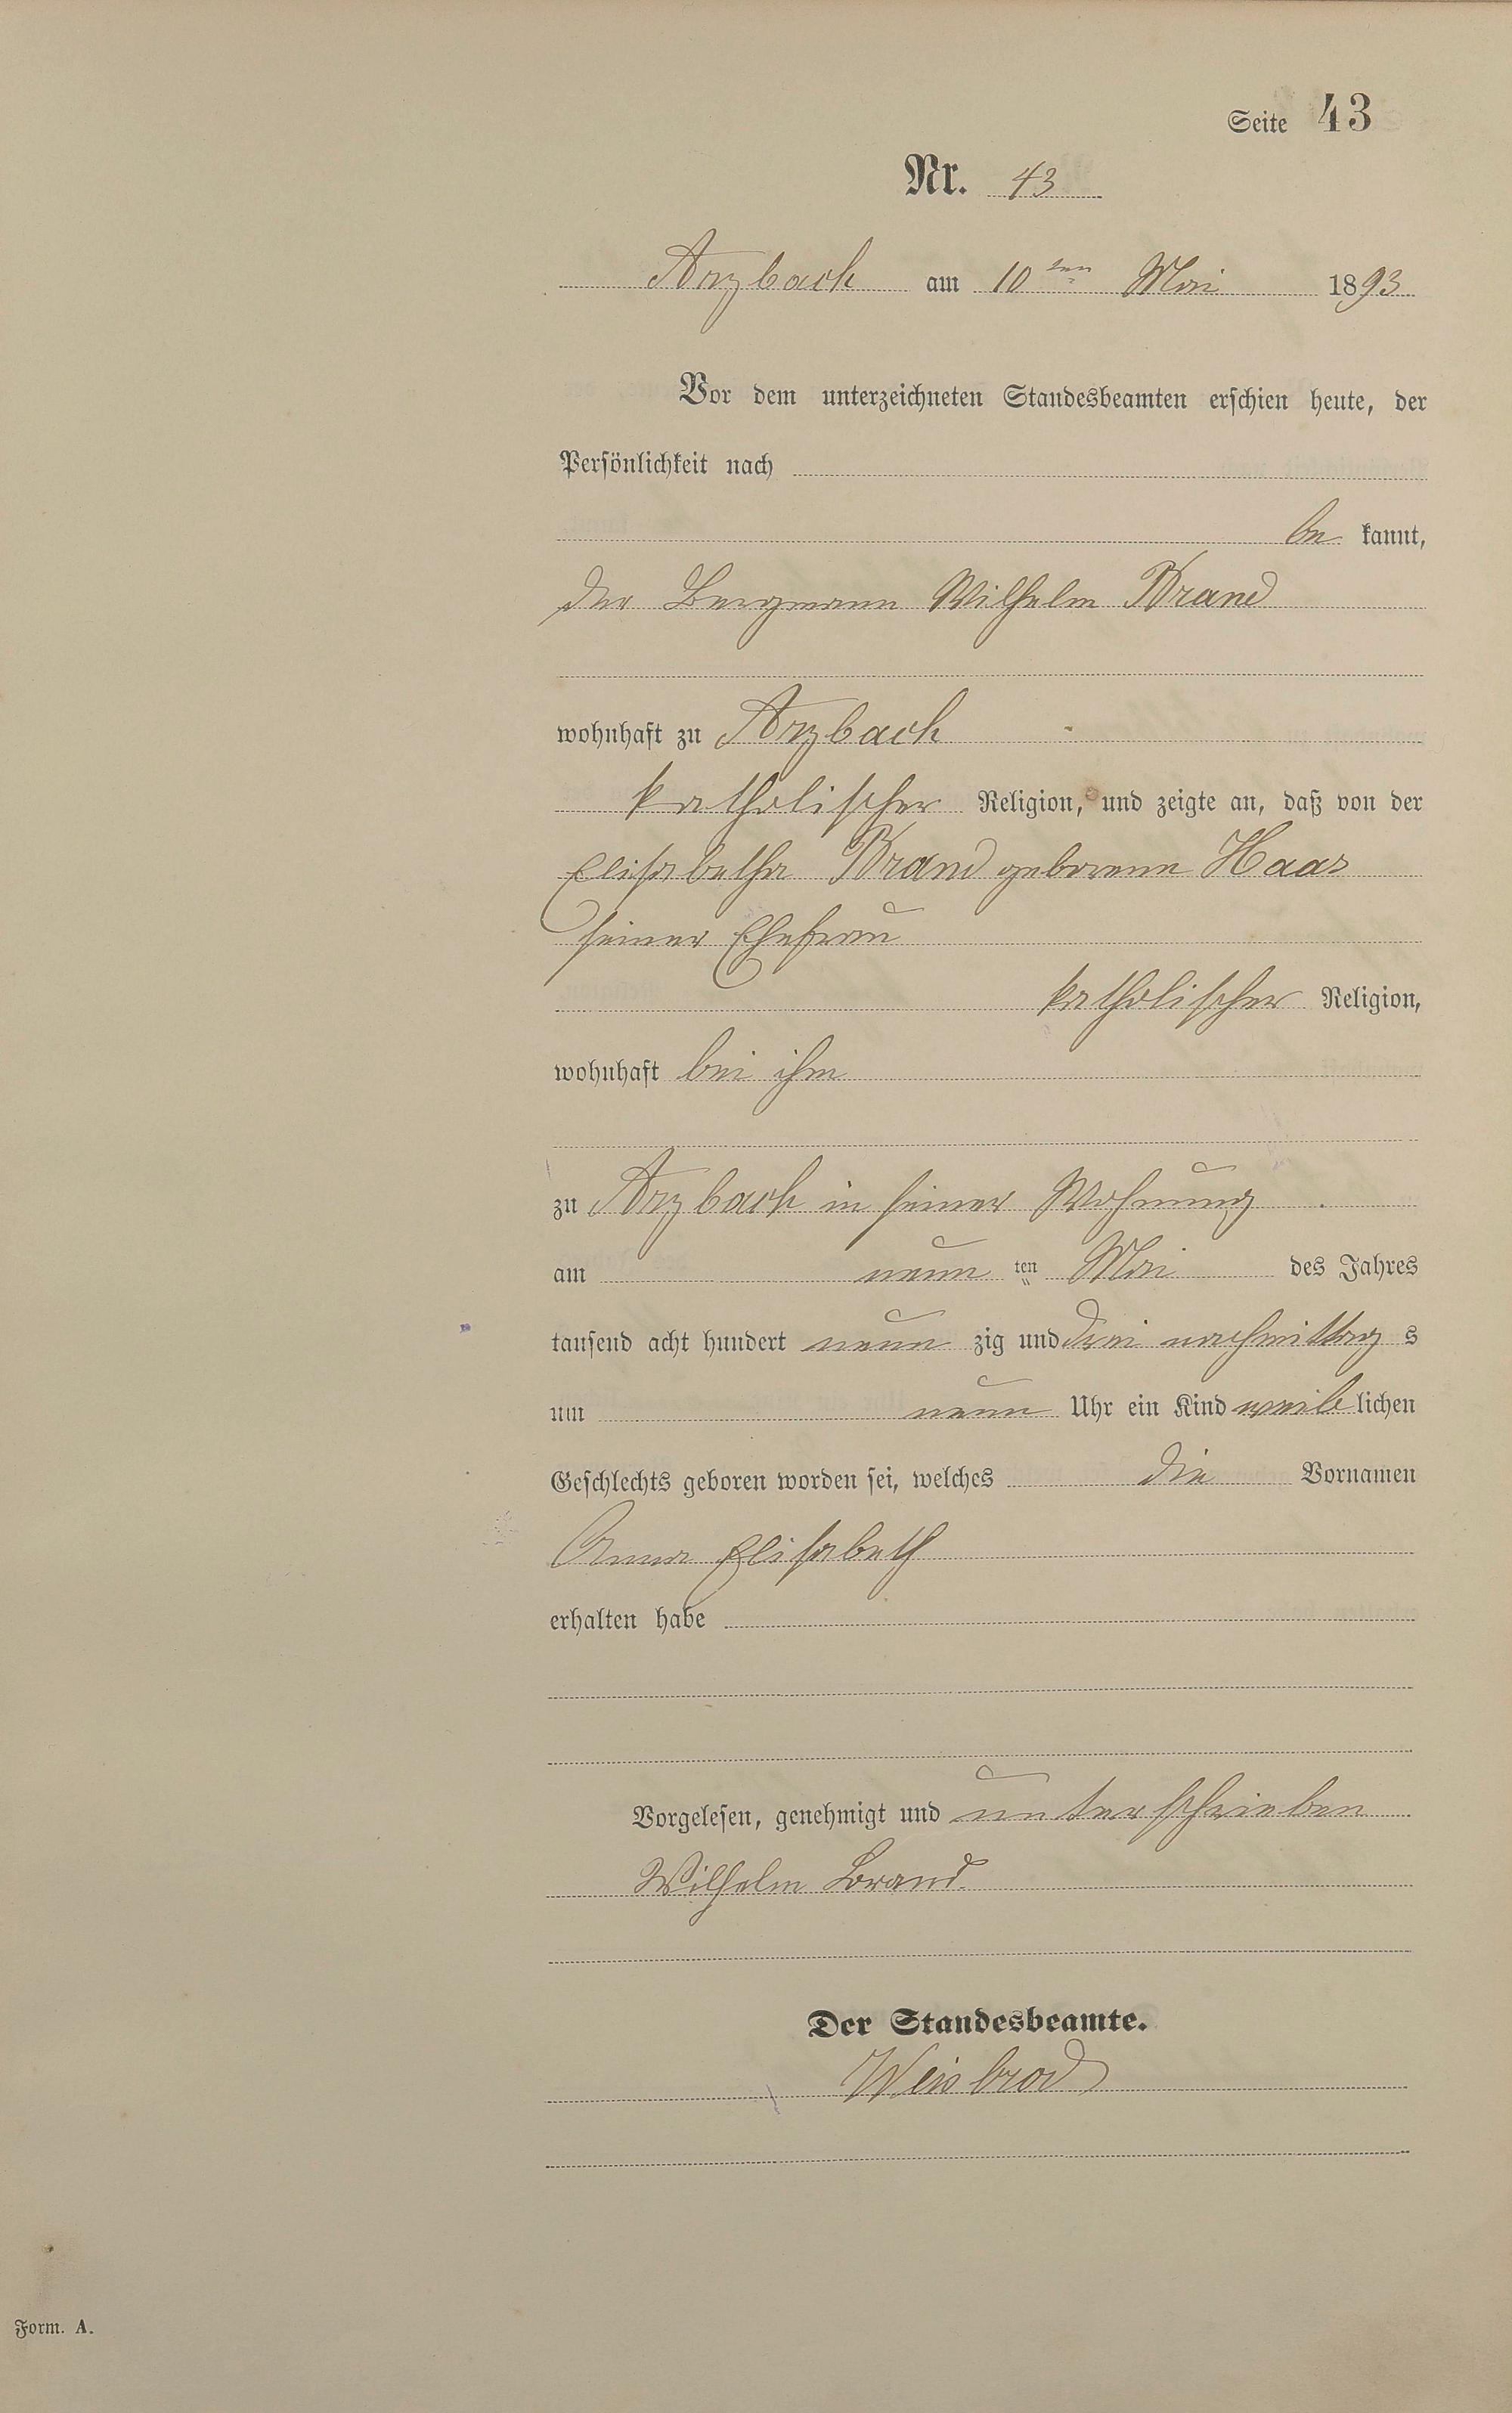 Seite 43
Nr. 43
Arzbach am 10ten Mai 1893
Vor dem unterzeichneten Standesbeamten erschien heute, der
Persönlichkeit nach
be kannt,
der Bergmann Wilhelm Brand
wohnhaft zu Arzbach
katholischer Religion, und zeigte an, daß von der
Elisabetha Brand geborenen Haas
seiner Ehefrau
katholischer Religion,
wohnhaft bei ihm
zu Arzbach in seiner Wohnung
am neun ten Mai des Jahres
tausend acht hundert neun zig und drei nachmittag s
um neun Uhr ein Kind weib lichen
Geschlechts geboren worden sei, welches die Vornamen
Anna Elisabeth
erhalten habe
Vorgelesen, genehmigt und unterschrieben
Wilhelm Brand
Der Standesbeamte.
Weisbrod
Form. A.